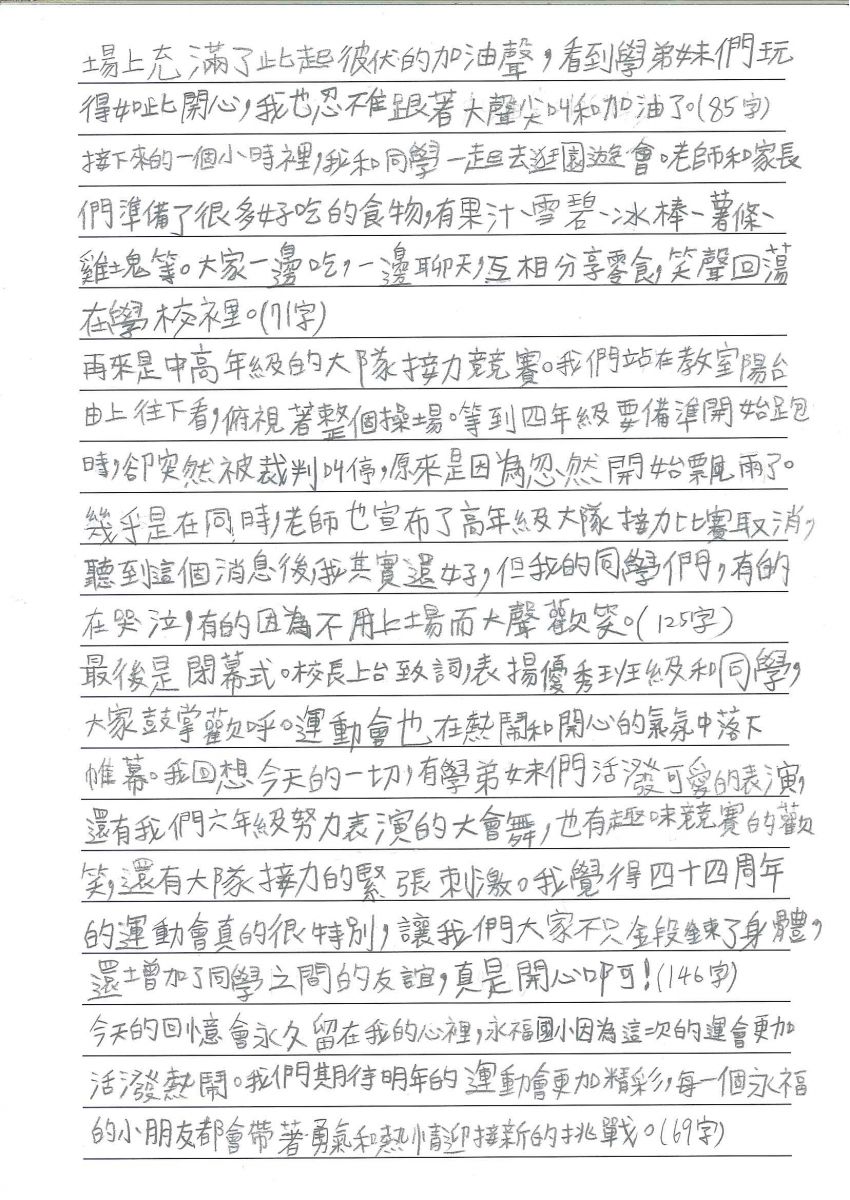 場上充滿了此起彼伏的加油聲，看到學弟妹們玩
得如此開心，我也忍不住跟著大聲尖叫和加油了。(85字)
接下來的一個小時裡，我和同學一起去逛園遊會。老師和家長
們準備了很多好吃的食物，有果汁、雪碧、冰棒、薯條、
雞塊等。大家一邊吃，一邊聊天，互相分享零食，笑聲回蕩
在學校裡。(71字)
再來是中高年級的大隊接力競賽。我們站在教室陽台
由上往下看，俯視著整個操場。等到四年級要備準開始跑
時，卻突然被裁判叫停，原來是因為忽然開始飄雨了。
幾乎是在同時，老師也宣布了高年級大隊接力比賽取消，
聽到這個消息後，我其實還好，但我的同學們，有的
在哭泣，有的因為不用上場而大聲歡笑。(125字)
最後是閉幕式。校長上台致詞，表揚優秀班級和同學，
大家鼓掌歡呼。運動會也在熱鬧和開心的氣氛中落下
帷幕。我回想今天的一切，有學弟妹們活潑可愛的表演，
還有我們六年級努力表演的大會舞，也有趣味競賽的歡
笑，還有大隊接力的緊張刺激。我覺得四十四周年
的運動會真的很特別，讓我們大家不只金段鍊了身體，
還增加了同學之間的友誼，真是開心啊！(146字)
今天的回憶會永久留在我的心裡，永福國小因為這次的運會更加
活潑熱鬧。我們期待明年的運動會更加精彩，每一個永福
的小朋友都會帶著勇氣和熱情迎接新的挑戰。(69字)